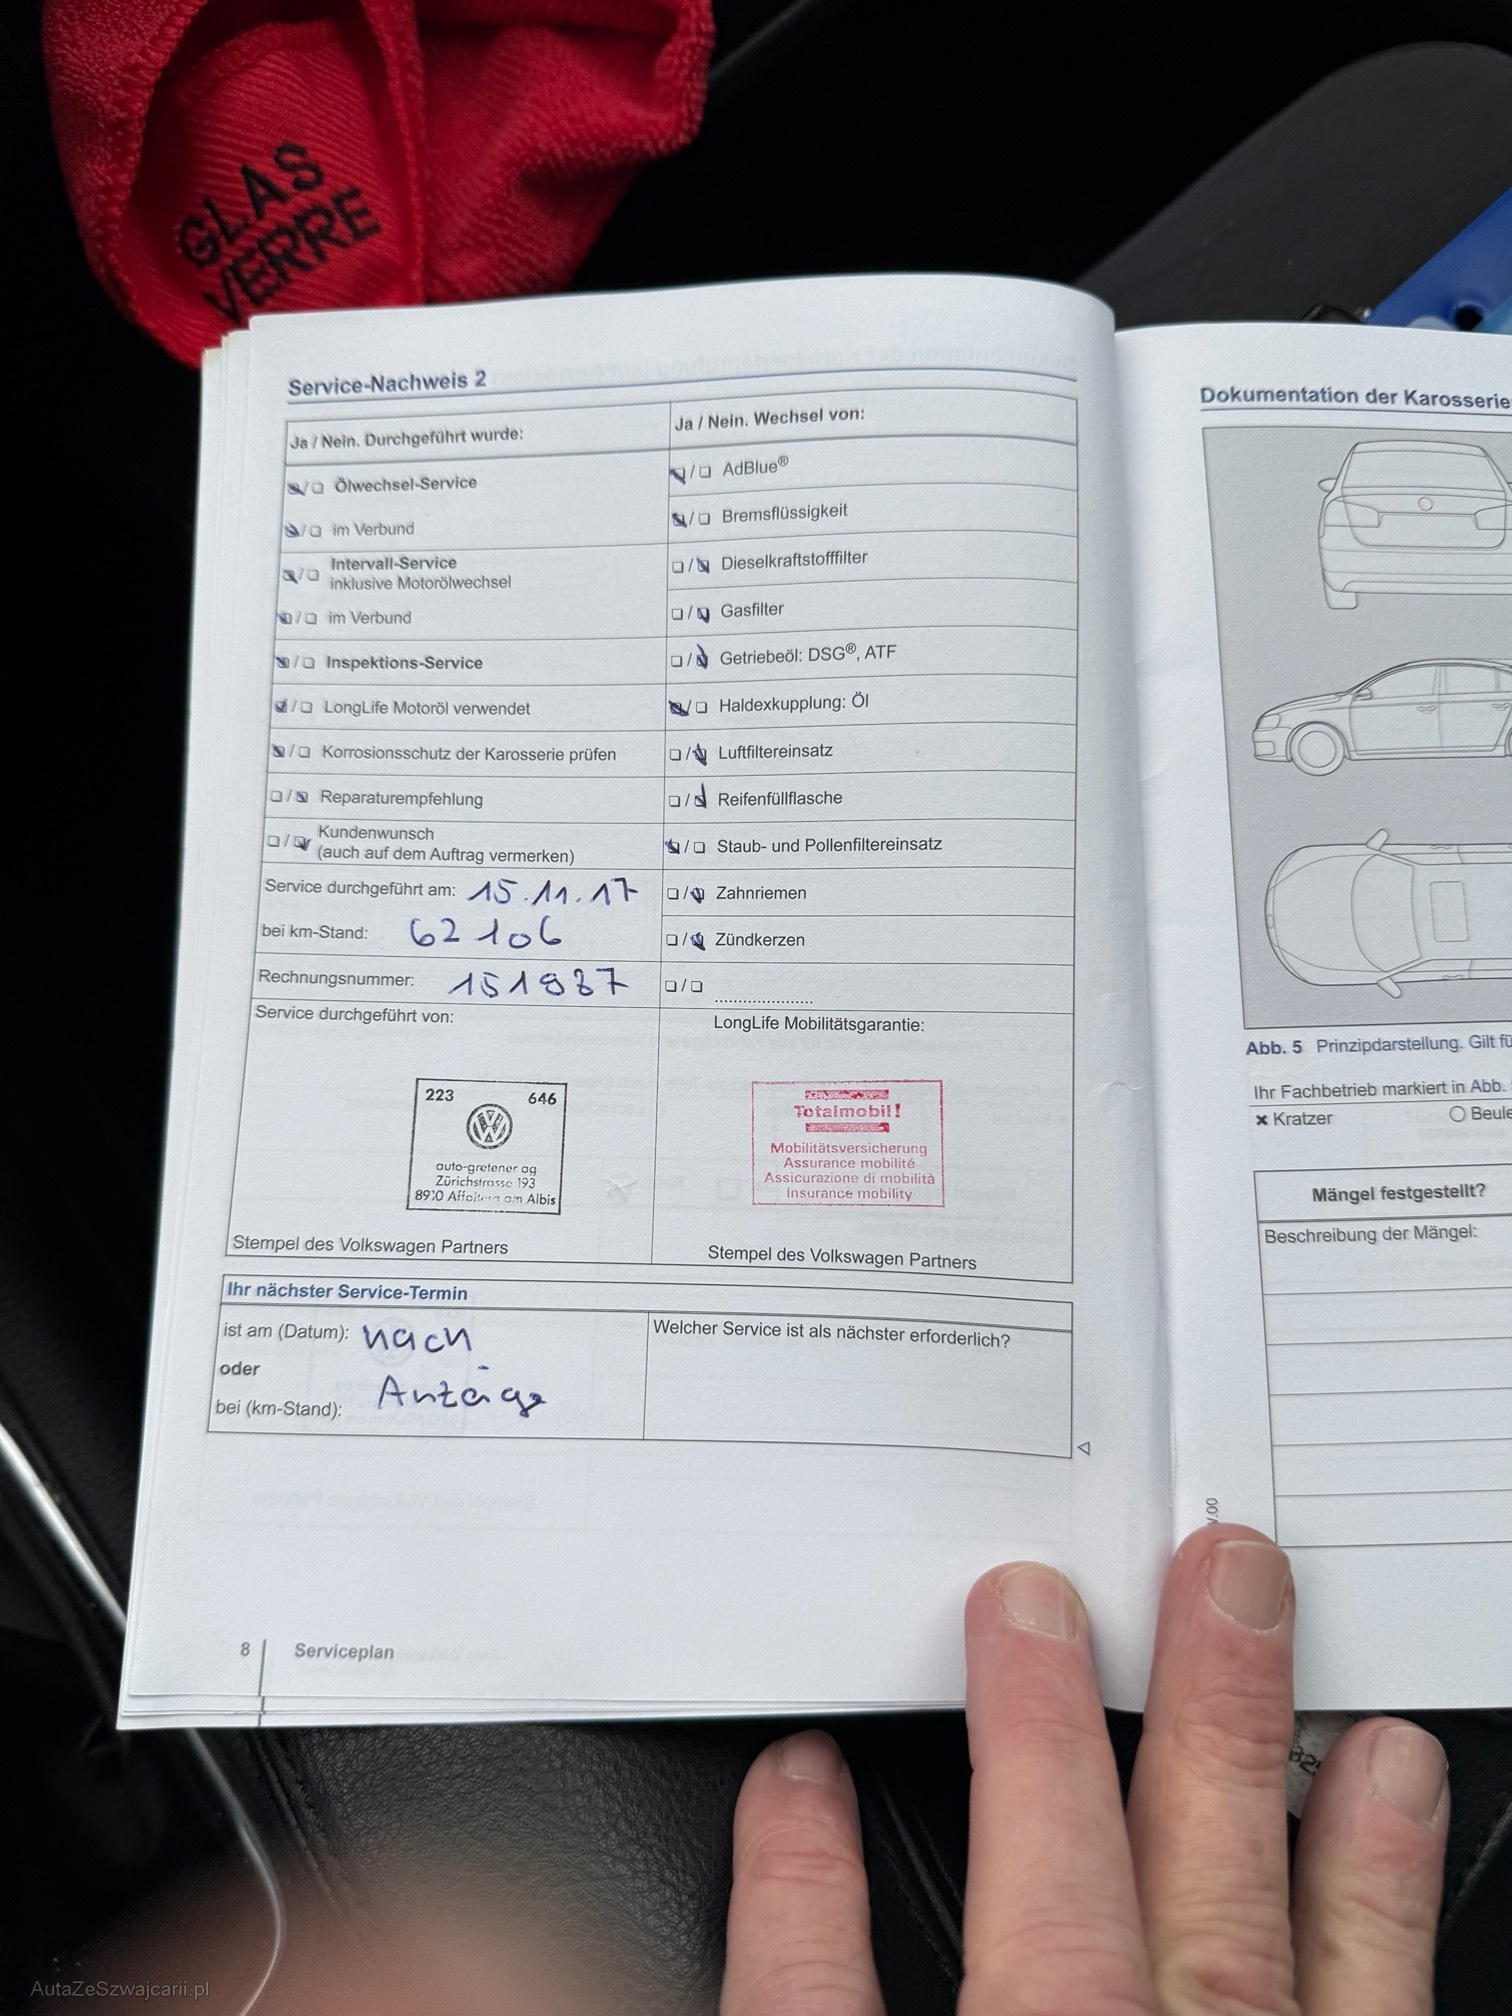 GLAS
VERRE
Service-Nachweis 2
Ja / Nein. Durchgeführt wurde:
Ölwechsel-Service
im Verbund
Intervall-Service
inklusive Motorölwechsel
im Verbund
Inspektions-Service
LongLife Motoröl verwendet
Korrosionsschutz der Karosserie prüfen
Reparaturempfehlung
Kundenwunsch
(auch auf dem Auftrag vermerken)
Service durchgeführt am: 15.11.17
bei km-Stand: 62106
Rechnungsnummer: 151987
Service durchgeführt von:
223 646
auto-gretener ag
Zürichstrasse 193
8910 Affoltern am Albis
Stempel des Volkswagen Partners
Ja / Nein. Wechsel von:
AdBlue®
Bremsflüssigkeit
Dieselkraftstofffilter
Gasfilter
Getriebeöl: DSG®, ATF
Haldexkupplung: Öl
Luftfiltereinsatz
Reifenfüllflasche
Staub- und Pollenfiltereinsatz
Zahnriemen
Zündkerzen
LongLife Mobilitätsgarantie:
Totalmobil!
Mobilitätsversicherung
Assurance mobilité
Assicurazione di mobilità
Insurance mobility
Stempel des Volkswagen Partners
Ihr nächster Service-Termin
ist am (Datum): nach
oder
bei (km-Stand): Anzeige
Welcher Service ist als nächster erforderlich?
8 Serviceplan
Dokumentation der Karosserie
Abb. 5 Prinzipdarstellung. Gilt fü
Ihr Fachbetrieb markiert in Abb.
Kratzer Beule
Mängel festgestellt?
Beschreibung der Mängel:
AutaZeSzwajcarii.pl